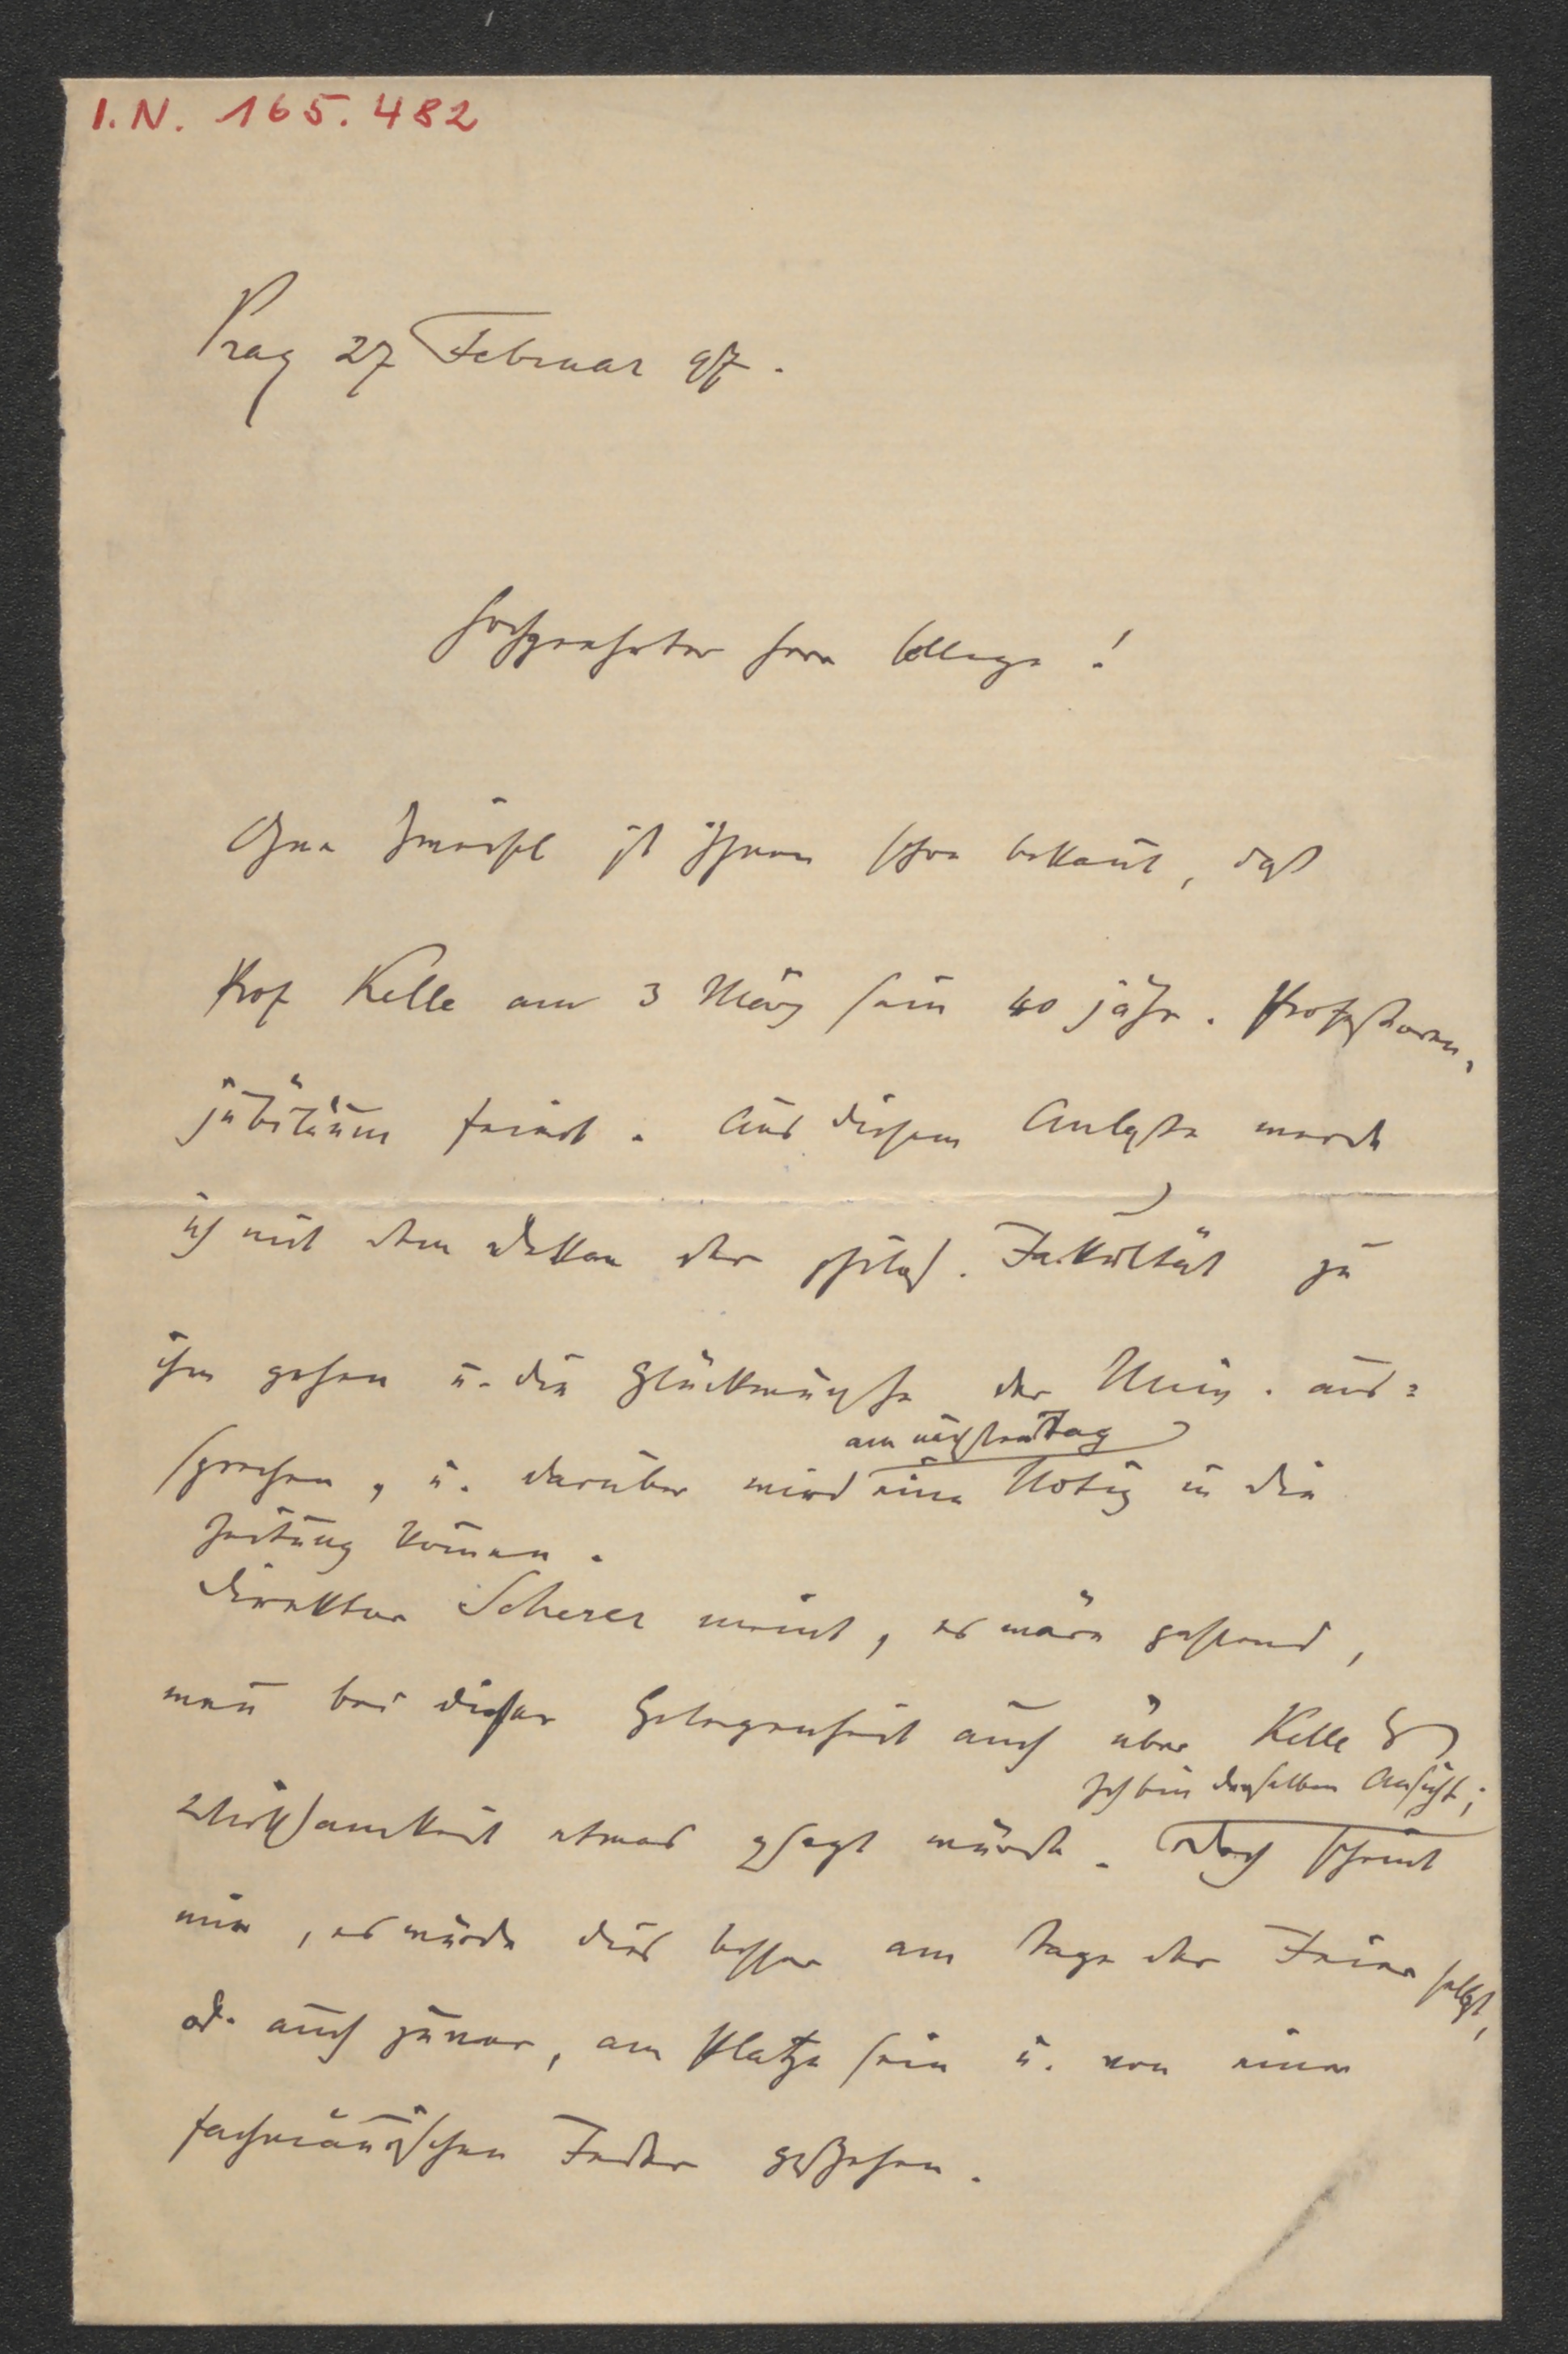 I.N. 165.482
Prag 27 Februar 97.
Hochgeehrter Herr College!
Ohne Zweifel ist Ihnen schon bekannt, daß
Prof Kelle am 3 März sein 40 jähr. Professoren-
jubiläum feiert. Aus diesem Anlasse werde
ich mit dem Dekan der philos. Fakultät zu
ihm gehen u. die Glückwünsche der Univ. aus=
sprechen, u. darüber wird am nächsten Tag eine Notiz in die
Zeitung kommen.
Direktor Scherer meint, es wäre passend,
wenn bei dieser Gelegenheit auch über Kelle's
Wirksamkeit etwas gesagt würde. Ich bin derselben Ansicht; doch scheint
mir, es würde dies besser am Tage der Feier selbst,
od. auch zuvor, am Platze sein u. von einer
fachmännischen Feder geschehen.